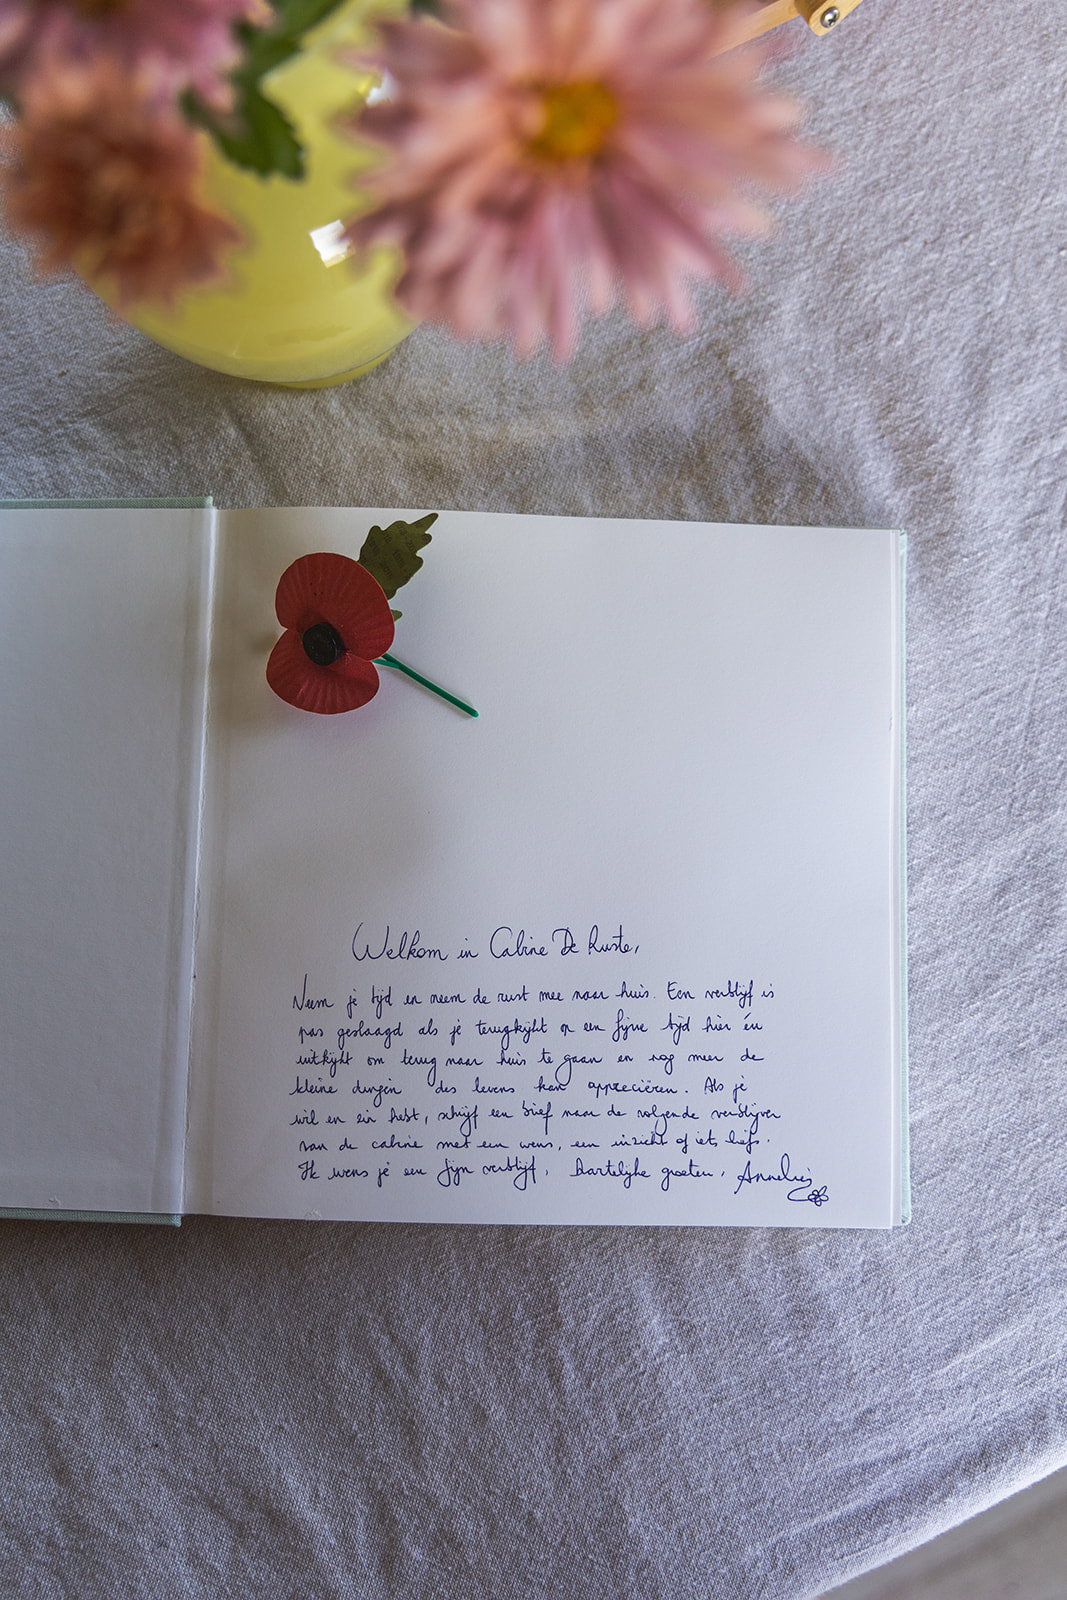 Welkom in Cabine De Ruste,
Neem je tijd en neem de rust mee naar huis. Een verblijf is
pas geslaagd als je terugkijkt op een fijne tijd hier én
uitkijkt om terug naar huis te gaan en nog meer de
kleine dingen des levens kan appreciëren. Als je
wil en zin hebt, schrijf een brief naar de volgende verblijver
van de cabine met een wens, een inzicht of iets liefs.
Ik wens je een fijn verblijf, hartelijke groeten, Annelies